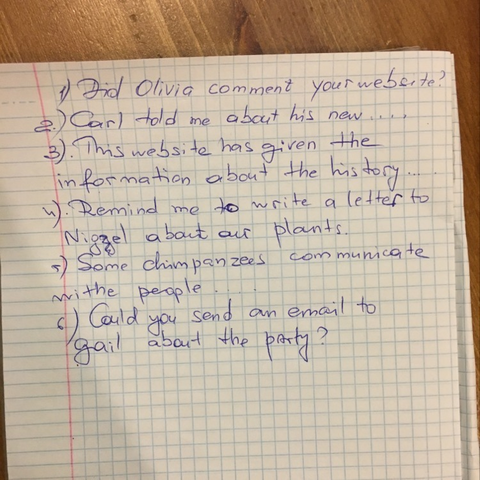 1) Did Olivia comment your website?
2.) Carl told me about his new ....
3). This website has given the
information about the history...
4). Remind me to write a letter to
Nigel about our plants.
5) Some chimpanzees communicate
withe people ....
6) Could you send an email to
gail about the party?